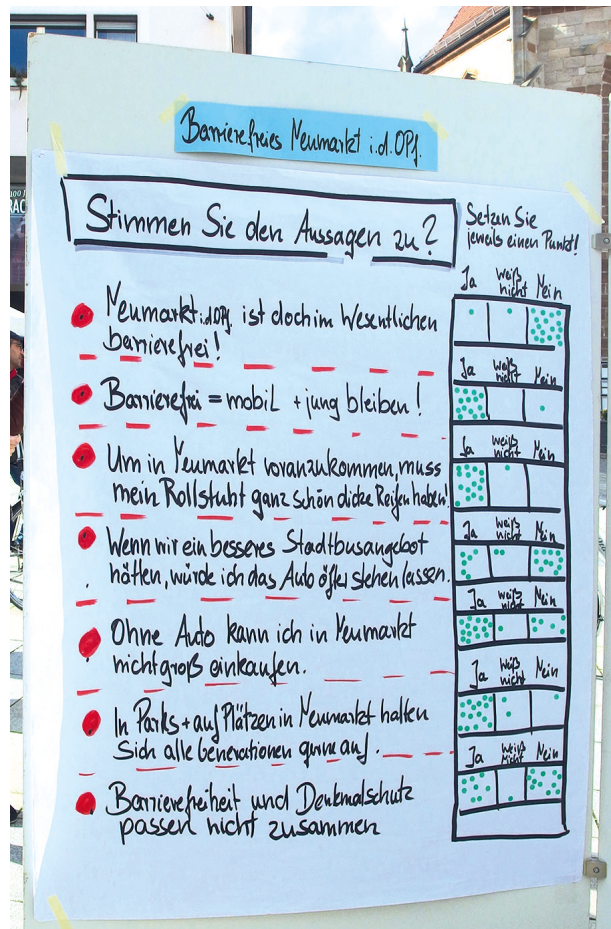 Barrierefreies Neumarkt i.d.OPf.
Stimmen Sie den Aussagen zu?
Setzen Sie
jeweils einen Punkt!
Ja weiß nicht Nein
Neumarkt i.d.OPf. ist doch im Wesentlichen
barrierefrei!
Ja weiß nicht Nein
Barrierefrei = mobil + jung bleiben!
Ja weiß nicht Nein
Um in Neumarkt voranzukommen, muss
mein Rollstuhl ganz schön dicke Reifen haben!
Ja weiß nicht Nein
Wenn wir ein besseres Stadtbusangebot
hätten, würde ich das Auto öfter stehen lassen.
Ja weiß nicht Nein
Ohne Auto kann ich in Neumarkt
nicht groß einkaufen.
Ja weiß nicht Nein
In Parks + auf Plätzen in Neumarkt halten
sich alle Generationen gerne auf.
Ja weiß nicht Nein
Barrierefreiheit und Denkmalschutz
passen nicht zusammen